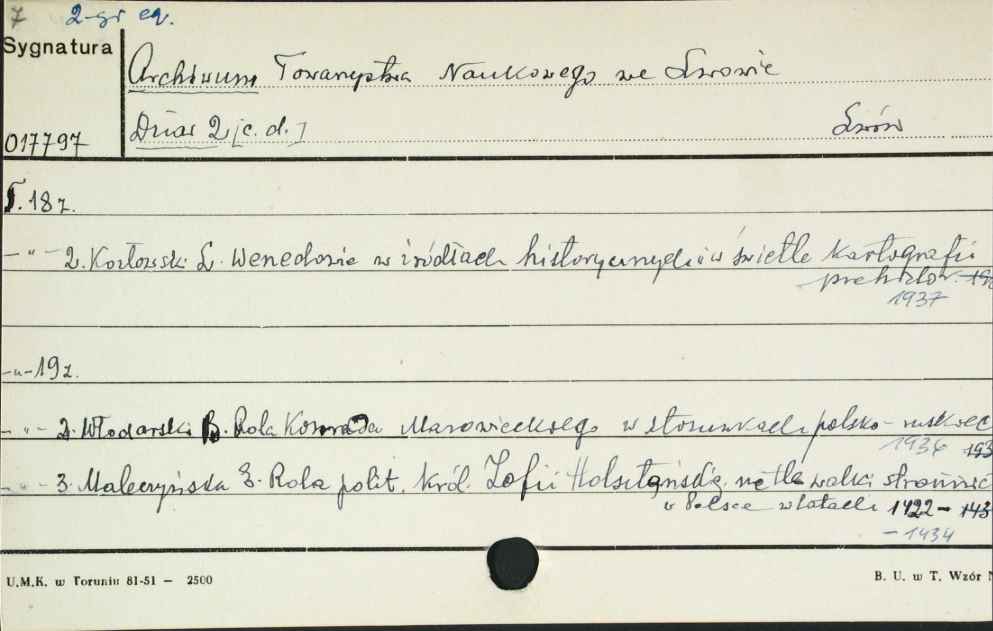 7 2-gi eq.
Sygnatura
Archiwum Towarzystwa Naukowego we Lwowie
017797
Dział 2 [c. d.] Lwów
T. 18 z.
- " - 2. Kozłowski L. Wenedowie w źródłach historycznych i w świetle kartografii
prehistor. 193
1937
-"- 19 z.
- " - 2. Włodarski B. Rola Konrada Mazowieckiego w stosunkach polsko-ruskich
1936 193
- " - 3. Maleczyńska E. Rola polit. król. Zofii Holszańskiej na tle walki stronnic
w Polsce w latach 1422 - 143
- 1434
U.M.K. w Toruniu 81-51 — 2500
B. U. w T. Wzór N